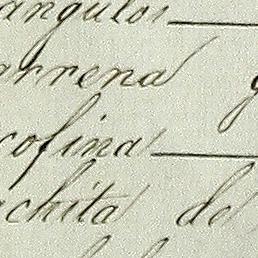 angulos
arrena g
cofina
achita de